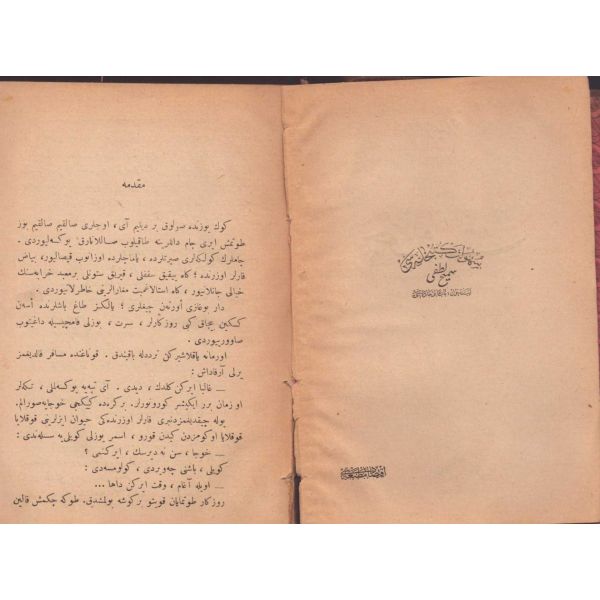 سميح لطفى
مقدمه
كوك يوزنده صولوق بر ديليم آى ، اوجلرى صالقيم صالقيم بوز
طوتمش ايرى چام داللرينه طاقيلوب صاللانارق يوكسه ليوردى .
جاملرك كولكه لرى صيرتلرده ، ياماچلرده اوزانوب قيصاليور ، بياض
قارلر اوزرنده ؛ كاه ييقيق سقفلى ، قيريق ستونلى بر معبد خرابه سنك
خيالى جانلانيور ، كاه استالاغميت مغارالرينى خاطرلاتيوردى .
دار بوغازى اورتن چيغلرى ؛ يالكز طاغ باشلرنده أسن
كسكين بيچاق كبى روزكارلر ، سرت ، بوزلى قامچيسيله داغيتوب
صاووريوردى .
اورمانه ياقلاشيركن ترددله باقيندق . قوناغنده مسافر قالديغمز
يرلى آرقاداش :
— غالبا ايركن كلدك ، ديدى . آى تپه يه يوكسه لملى ،
او زمان برر ايكيشر كورونورلر . بر كره ده كيكجى خوجايه صورالم .
يوله چيقديغمزدنبرى قارلر اوزرنده كى حيوان ايزلرينى قوقلايا
قوقلايا اوكومزدن كيدن قورو ، اسمر يوزلى كويلى يه سسله ندى :
— خوجا ، سن نه ديرسك ، ايركنمى ؟
كويلى ، باشنى چه ويردى ، كولومسه دى :
— اويله آغام ، وقت ايركن داها ...
روزكار طوتمايان قويتو بر كوشه بولمشدق . طوكه چكمش قالين